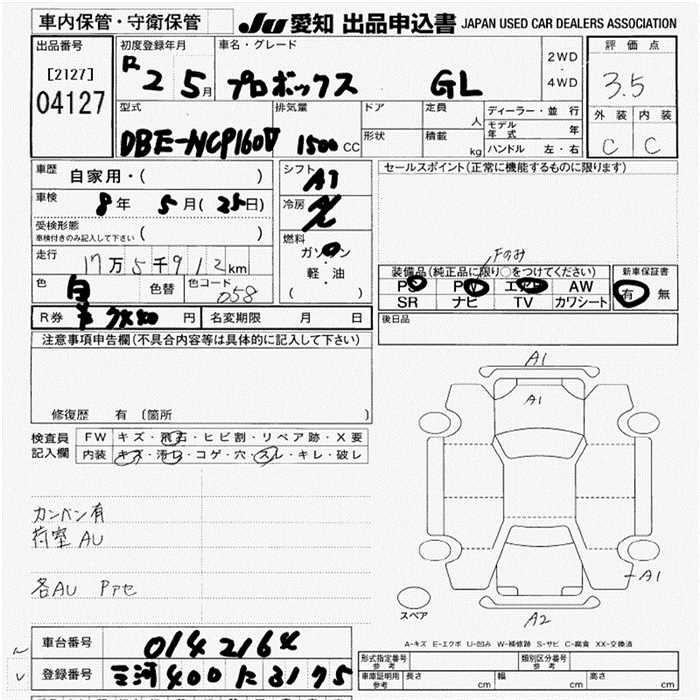 車内保管・守衛保管
JU 愛知 出品申込書 JAPAN USED CAR DEALERS ASSOCIATION
出品番号
[2127]
04127
初度登録年月
R2 5月
車名・グレード
プロボックス GL
2WD
・
4WD
評価点
3.5
外装 内装
C C
型式
DBE-NCP160V
排気量
1500 CC
ドア
形状
定員
人
積載
kg
ディーラー・並行
モデル年式 年
ハンドル 左・右
車歴
自家用・( )
車検
8年 5月(25日)
受検形態
車検付きのみ記入して下さい ( )
走行
17万5千912km
色
白
色替
色コード
058
シフト
AT
冷房
燃料
ガソリン
軽・油
( )
セールスポイント(正常に機能するものに限ります)
Fのみ
装備品(純正品に限り○をつけてください)
PS PW エアB AW
SR ナビ TV カワシート
新車保証書
有 無
後日品
R券 円
名変期限 月 日
注意事項申告欄(不具合内容等は具体的に記入して下さい)
修復歴 有 〔箇所 〕
検査員
記入欄
FW キズ・飛石・ヒビ割・リペア跡・X要
内装 キズ・汚れ・コゲ・穴・スレ・キレ・破レ
カンバン有
荷室AU
各AU Pアセ
A1
A1
A1
A2
スペア
A-キズ E-エクボ U-凹み W-補修跡 S-サビ C-腐食 XX-交換済
車台番号
0142164
登録番号
三河 400 に 3175
形式指定番号
参考
類別区分番号
参考
車庫証明用
参考
長さ cm
幅 cm
高さ cm